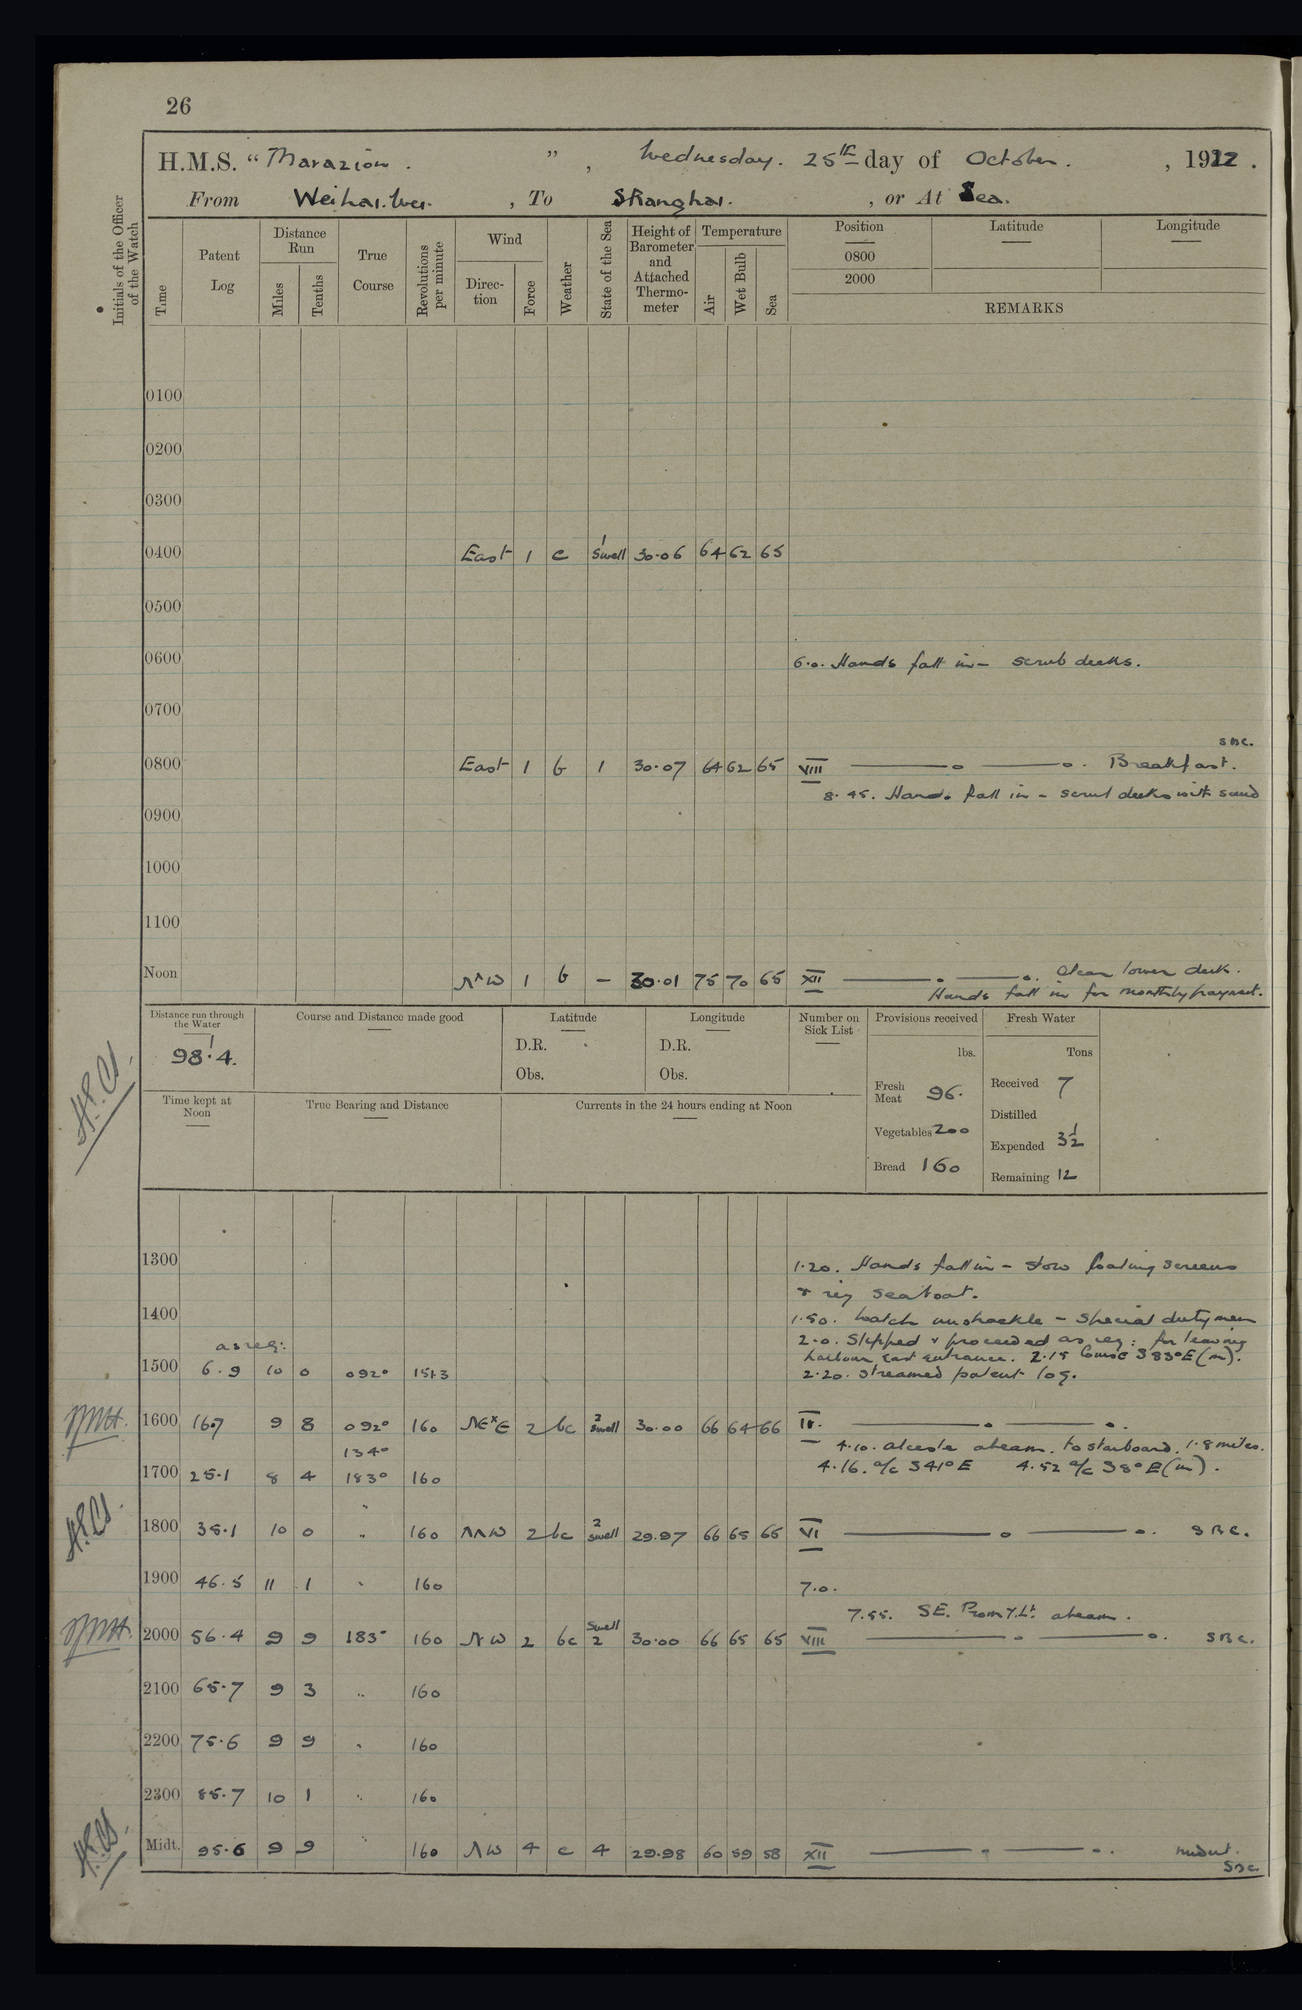 26
H.M.S. "Marazion." , Wednesday. 25th day of October. , 1922.
From Weihai.Wei. , To Shanghai. , or At Sea.
Initials of the Officer of the Watch
Time Patent Log Distance Run Miles Tenths True Course Revolutions per minute Wind Direction Force Weather State of the Sea Height of Barometer and Attached Thermometer Temperature Air Wet Bulb Sea Position 0800 2000 Latitude Longitude
REMARKS
0100
0200
0300
0400 East 1 c 1 Swell 30.06 64 62 65
0500
0600 6.0. Hands fall in - scrub decks.
0700
SBC.
0800 East 1 b 1 30.07 64 62 65 VIII ——o ——o. Breakfast.
8.45. Hands fall in - scrub decks with sand
0900
1000
1100
Noon N'W 1 b — 30.01 75 70 65 XII ——o ——o. Clean lower deck.
Hands fall in for monthly payment.
Distance run through the Water 98.4.
Course and Distance made good
Latitude D.R. Obs.
Longitude D.R. Obs.
Number on Sick List
Provisions received lbs.
Fresh Meat 96.
Vegetables 200
Bread 160
Fresh Water Tons
Received 7
Distilled
Expended 3½
Remaining 12
Time kept at Noon
True Bearing and Distance
Currents in the 24 hours ending at Noon
H.P.
1300 1.20. Hands fall in - stow boating screens
& rig seaboat.
1400 1.50. Watch unshackle - special dutymen
as req: 2.0. Slipped & proceeded as req: for leaving
harbour East entrance. 2.15 Course S83°E (m).
1500 6.9 10 0 092° 1543 2.20. Streamed patent log.
1600 16.7 9 8 092° 160 NE×E 2 bc 2 Swell 30.00 66 64 66 IV. ——o ——o.
134° 4.10. Alceste abeam. to starboard. 1.8 miles.
1700 25.1 8 4 183° 160 4.16. a/c S41°E 4.52 a/c S8°E (m).
"
1800 35.1 10 0 " 160 NNW 2 bc 2 swell 29.97 66 65 66 VI ——o ——o. SBC.
1900 46.5 11 1 " 160 7.0.
7.55. SE. Promy. Lt. abeam.
2000 56.4 9 9 183° 160 NW 2 bc Swell 2 30.00 66 65 65 VIII ——o ——o. SBC.
2100 65.7 9 3 " 160
2200 75.6 9 9 " 160
2300 85.7 10 1 " 160
Midt. 95.6 9 9 " 160 NW 4 c 4 29.98 60 59 58 XII ——o ——. midnt.
SBC